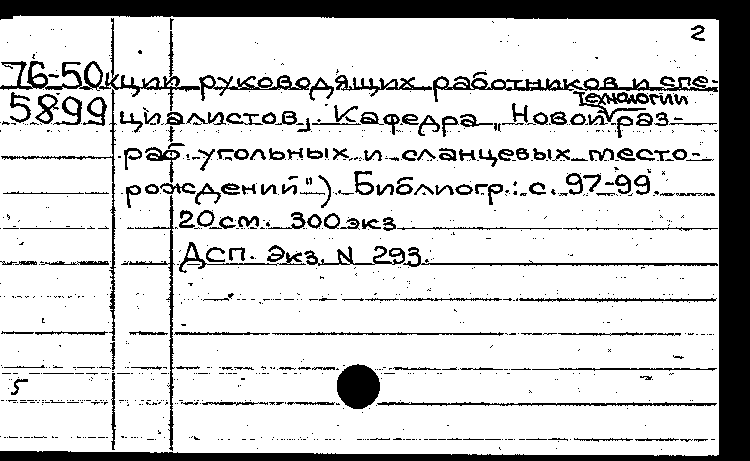 2
76-50 кции руководящих работников и спе-
Технологии
5899 циалистов". Кафедра „Новой раз-
раб. угольных и сланцевых место-
рождений"). Библиогр.: с. 97-99.
20 см. 300 экз
ДСП. Экз. N 293.
5